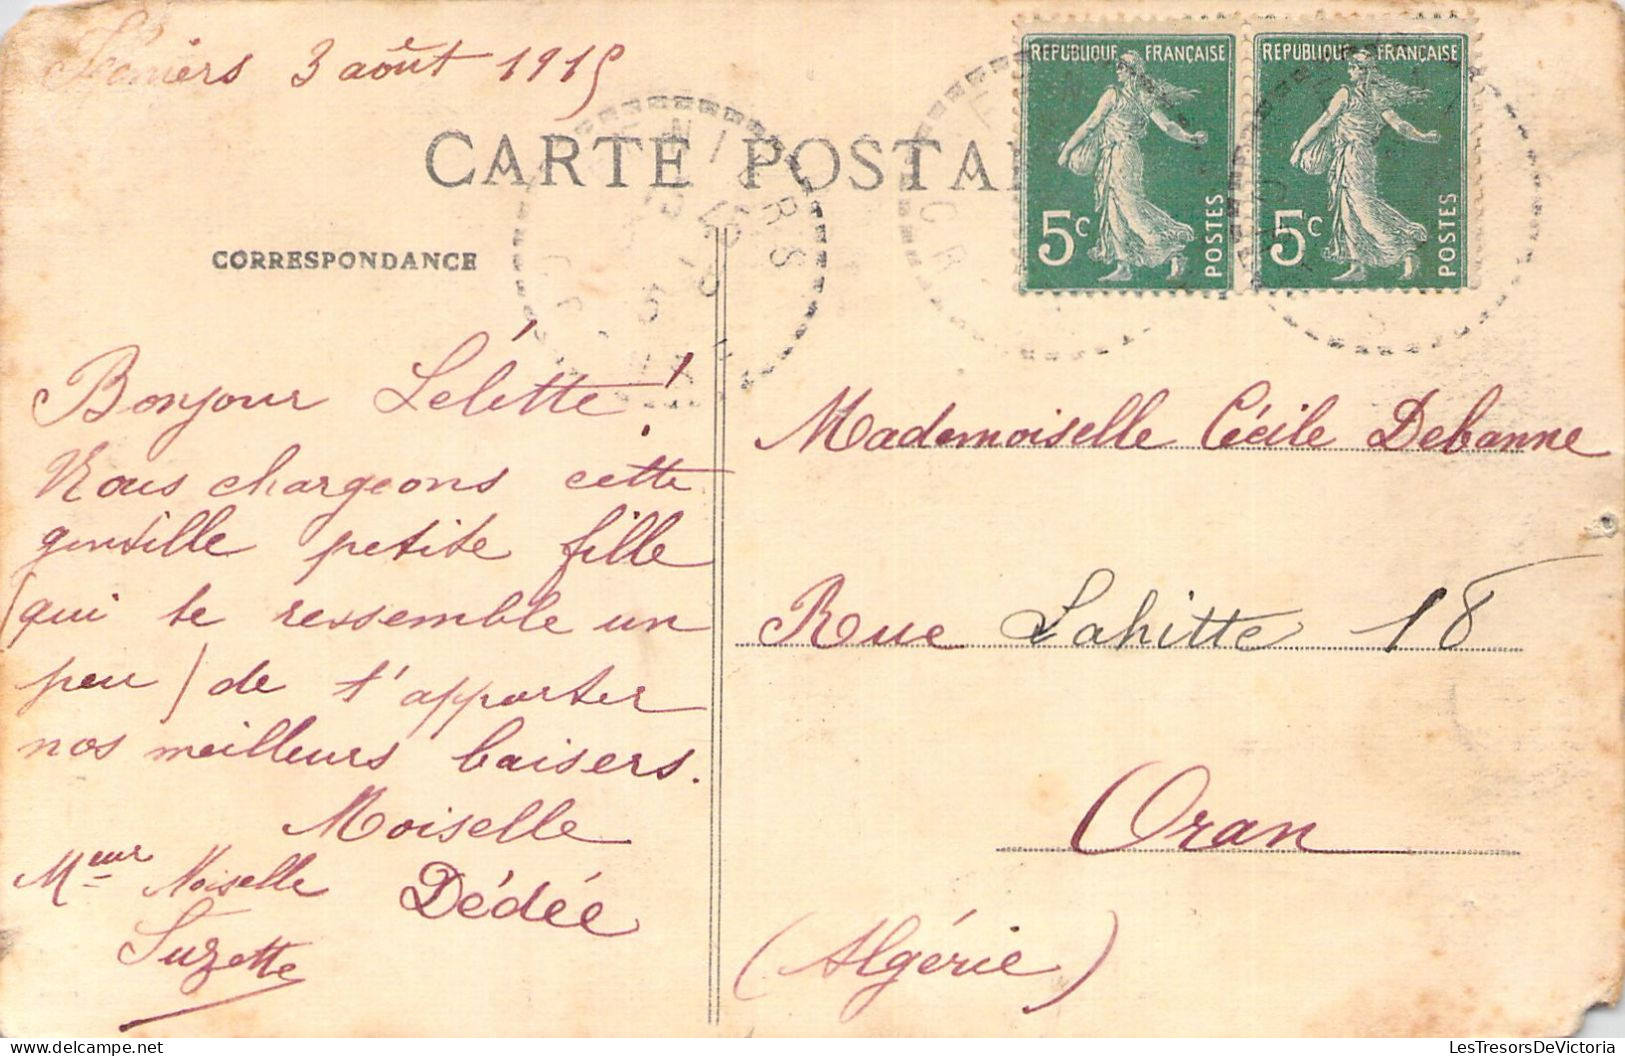 Feniers 3 août 1915
CARTE POSTA
CORRESPONDANCE
REPUBLIQUE FRANÇAISE
5c
POSTES
REPUBLIQUE FRANÇAISE
5c
POSTES
Bonjour Lélette!
Nous chargeons cette
gentille petite fille
(qui te ressemble un
peu) de t'apporter
nos meilleurs baisers.
Moiselle
Dédée
Meur Noiselle
Suzette
Mademoiselle Cécile Debanne
Rue Lahitte 18
Oran
(Algérie)
LesTresorsDeVictoria